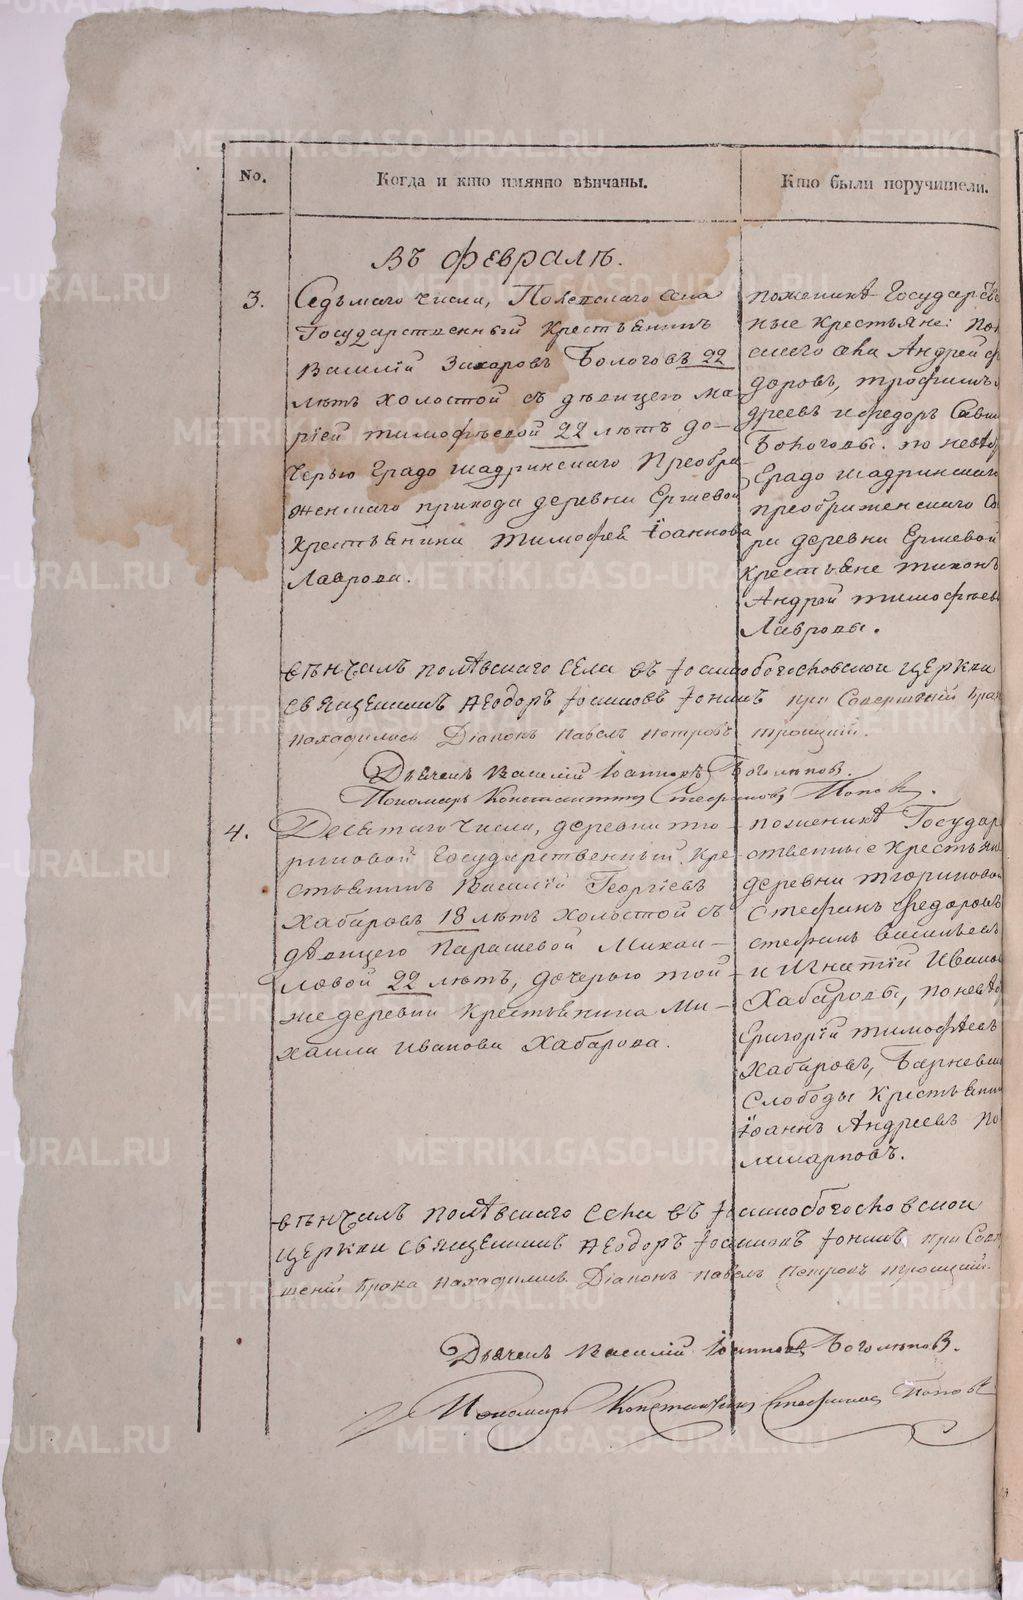 No.
Когда и кто имянно вѣнчаны.
Кто были поручители.
Въ Февралѣ.
3.
Седьмаго числа, Полевскаго села
Государственный крестьянинъ
Василій Захаровъ Бологовъ 22
лѣтъ холостой съ дѣвицею Ма-
ріей Тимофѣевой 22 лѣтъ до-
черью Градо Шадринскаго Преобра
женскаго прихода деревни Ершевой
крестьянина Тимофея Іоаннова
Лаврова.
по женихѣ Государстве
ные крестьяне: Пол
скаго села Андрей Ѳ
доровъ, Трофимъ
дреевъ и Федоръ Савин
по невѣс
Градо Шадринскаго
Преображенскаго Со
ра деревни Ершевой
крестьяне Тихонъ
Андрей Тимофѣевы
Лавровы.
вѣнчалъ Полѣвскаго села въ Іоаннобогословской церкви
священникъ Ѳеодоръ Іоанновъ Іонинъ при Совершеній Брака
находились Діаконъ Павелъ Петровъ Троицкій.
Дьячекъ Василій Іоанновъ Боголѣповъ.
Пономарь Константинъ Стефановъ Поповъ.
4.
Десятаго числа, деревни
Государственный Кре
стьянинъ Василій Георгіевъ
Хабаровъ 18 лѣтъ холостой съ
дѣвицею Параскевой Михаи-
ловой 22 лѣтъ, дочерью той
же деревни Крестьянина Ми-
хаила Иванова Хабарова.
по женихѣ Государ
ственные крестьяне
деревни
Стефанъ Федоровъ
Стефанъ Васильевъ
и Игнатій Ивановъ
Хабаровы, по невѣс
Григорій Тимофѣевъ
Хабаровъ, Барневской
Слободы крестьянинъ
Іоаннъ Андреевъ По
ликарповъ.
вѣнчалъ Полѣвскаго села въ Іоаннобогословской
церкви священникъ Ѳеодоръ Іоанновъ Іонинъ при Совер
шеній Брака находились Діаконъ Павелъ Петровъ Троицкій.
Дьячекъ Василій Іоанновъ Боголѣповъ.
Пономарь Константинъ Стефановъ Поповъ
METRIKI.GASO-URAL.RU